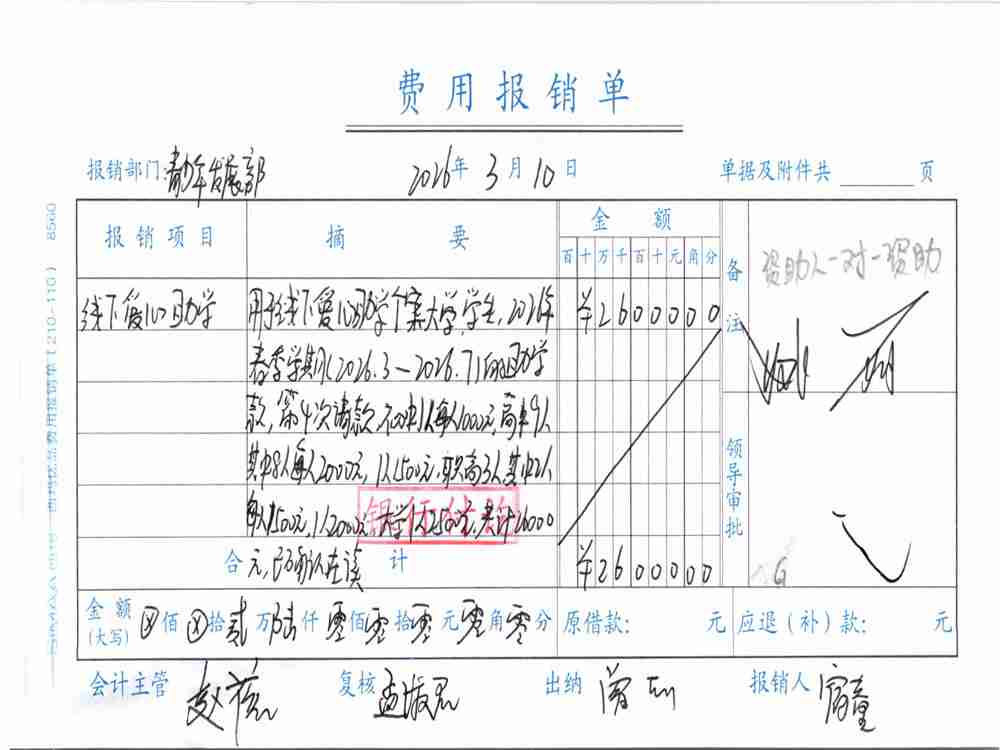 费用报销单
报销部门:青少年发展部 2026年3月10日 单据及附件共 页
报销项目 摘要 金额 备注
百十万千百十元角分
资助人一对一资助
线下爱心助学 用于线下爱心助学个案大学,学生,2026年 ¥2600000
春季学期(2026.3—2026.7)的助学
款,第4次请款,初中1人每人1000元,高中9人
其中8人每人2000元,1人1500元,职高3人,其中2人
每人1500元,1人2000元,大学1人2500元,共计26000
元,已确认在读
合计 ¥2600000
领导审批
金额(大写) ⊗佰⊗拾贰万陆仟零佰零拾零元零角零分 原借款: 元 应退(补)款: 元
会计主管 复核 出纳 报销人
银行付讫